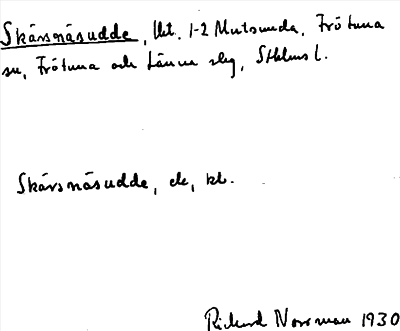 Skärsnäsudde, lht. 1-2 Mutsunda, Frötuna
sn, Frötuna och Länna slg, Sthlms l.
Skärsnäsudde, -, kl.
Rickard Norrman 1930